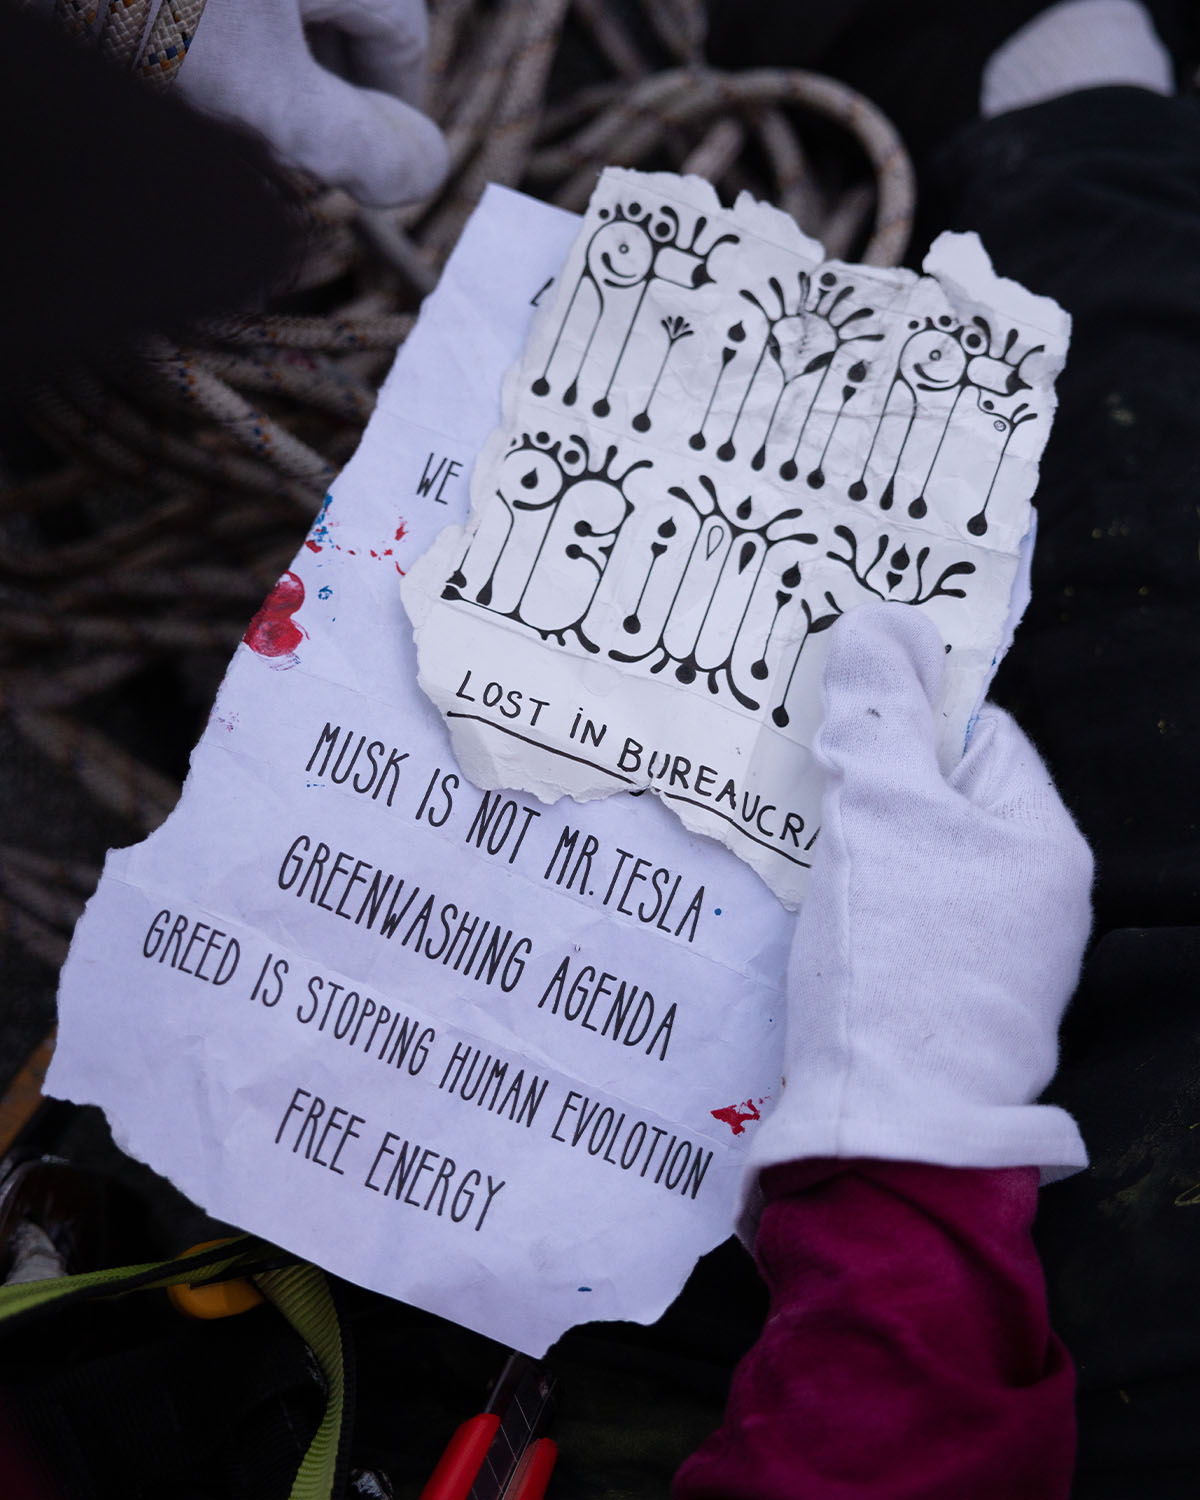 LOST iN BUREAUCRA
WE
MUSK IS NOT MR. TESLA
GREENWASHING AGENDA
GREED IS STOPPING HUMAN EVOLOTION
FREE ENERGY